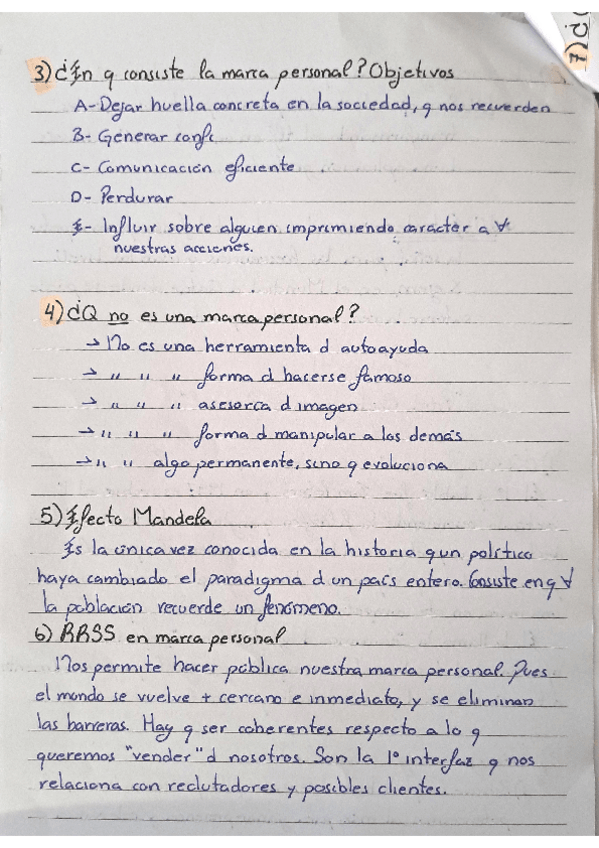 3) ¿En q consiste la marca personal? Objetivos
A- Dejar huella concreta en la sociedad, q nos recuerden
B- Generar confi
C- Comunicación eficiente
D- Perdurar
E- Influir sobre alguien imprimiendo carácter a ∀
nuestras acciones.
4) ¿Q no es una marca personal?
→ No es una herramienta d autoayuda
→ " " " forma d hacerse famoso
→ " " " asesoría d imagen
→ " " " forma d manipular a los demás
→ " " algo permanente, sino q evoluciona
5) Efecto Mandela
Es la única vez conocida en la historia q un político
haya cambiado el paradigma d un país entero. Consiste en q ∀
la población recuerde un fenómeno.
6) RRSS en marca personal
Nos permite hacer pública nuestra marca personal. Pues
el mundo se vuelve + cercano e inmediato, y se eliminan
las barreras. Hay q ser coherentes respecto a lo q
queremos "vender" d nosotros. Son la 1º interfaz q nos
relaciona con reclutadores y posibles clientes.
7) ¿